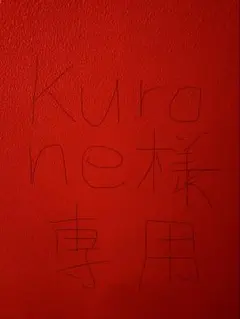 kuro
ne様
専用